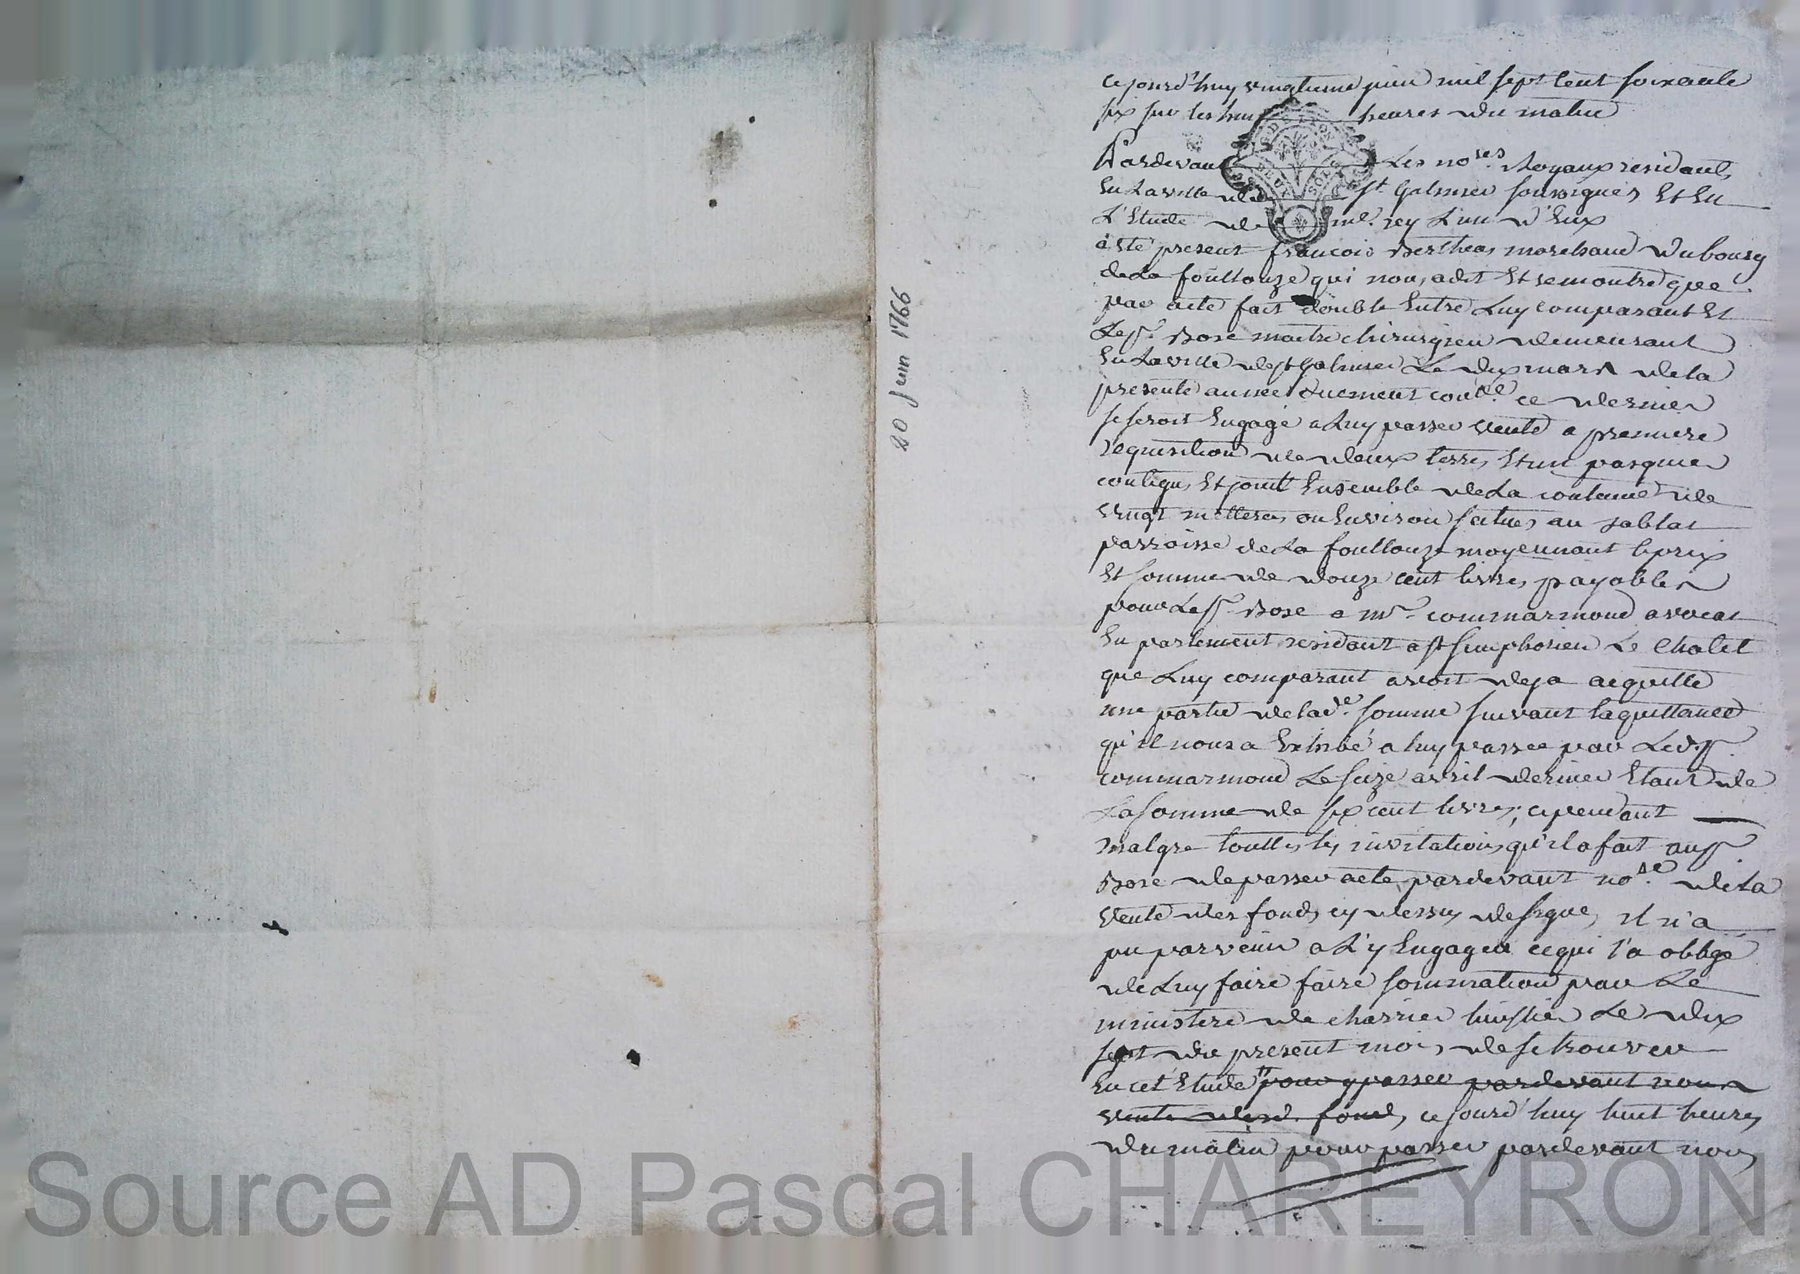 20 Juin 1766
cejourd'huy vingtieme juin mil sept cent soixante
six sur les huit heures du matin
Pardevant Les no.res Royaux residants
En La ville de St Galmier soussignés Et En
L'Etude de me. rey L'un d'Eux
a été present francois Berthea marchand du bourg
de La foullouze qui nous a dit Et remontré que
par acte fait double Entre Luy comparant Et
Le sr Bose maitre chirurgien demeurant
En La ville de st Galmier Le dix mars de la
presente année duement con.lé ce dernier
se seroit Engagé a Luy passer vente a premiere
requisition de deux terres Et un pasquier
contigus Et joint Ensemble de La contenue de
vingt metterés ou Environ situés au sablat
parroisse de La foullouze moyennant le prix
Et somme de douze cent livres payables
pour Le sr. Bose a mr. commarmond avocat
En parlement residant a st simphorien Le Chatel
que Luy comparant avoit deja acquitté
une partie de lad.e somme suivant la quittance
qu'il nous a Exhibé a Luy passée par Led. sr.
commarmond Le seize avril dernier Etant de
La somme de six cent livres; cependant
malgre touttes les invitations qu'il a fait au sr.
Bose de passer acte pardevant no.re de La
vente des fonds cy dessus designés, il n'a
pu parvenir a L'y Engager ce qui l'a obligé
de Luy faire faire sommation par Le
ministere de charrier huissier Le dix
sept du present mois de se trouver
En cet Etude pour y passer pardevant nous
vente desd. fonds, ce jourd'huy huit heures
du matin pour passer pardevant nous
Source AD Pascal CHAREYRON